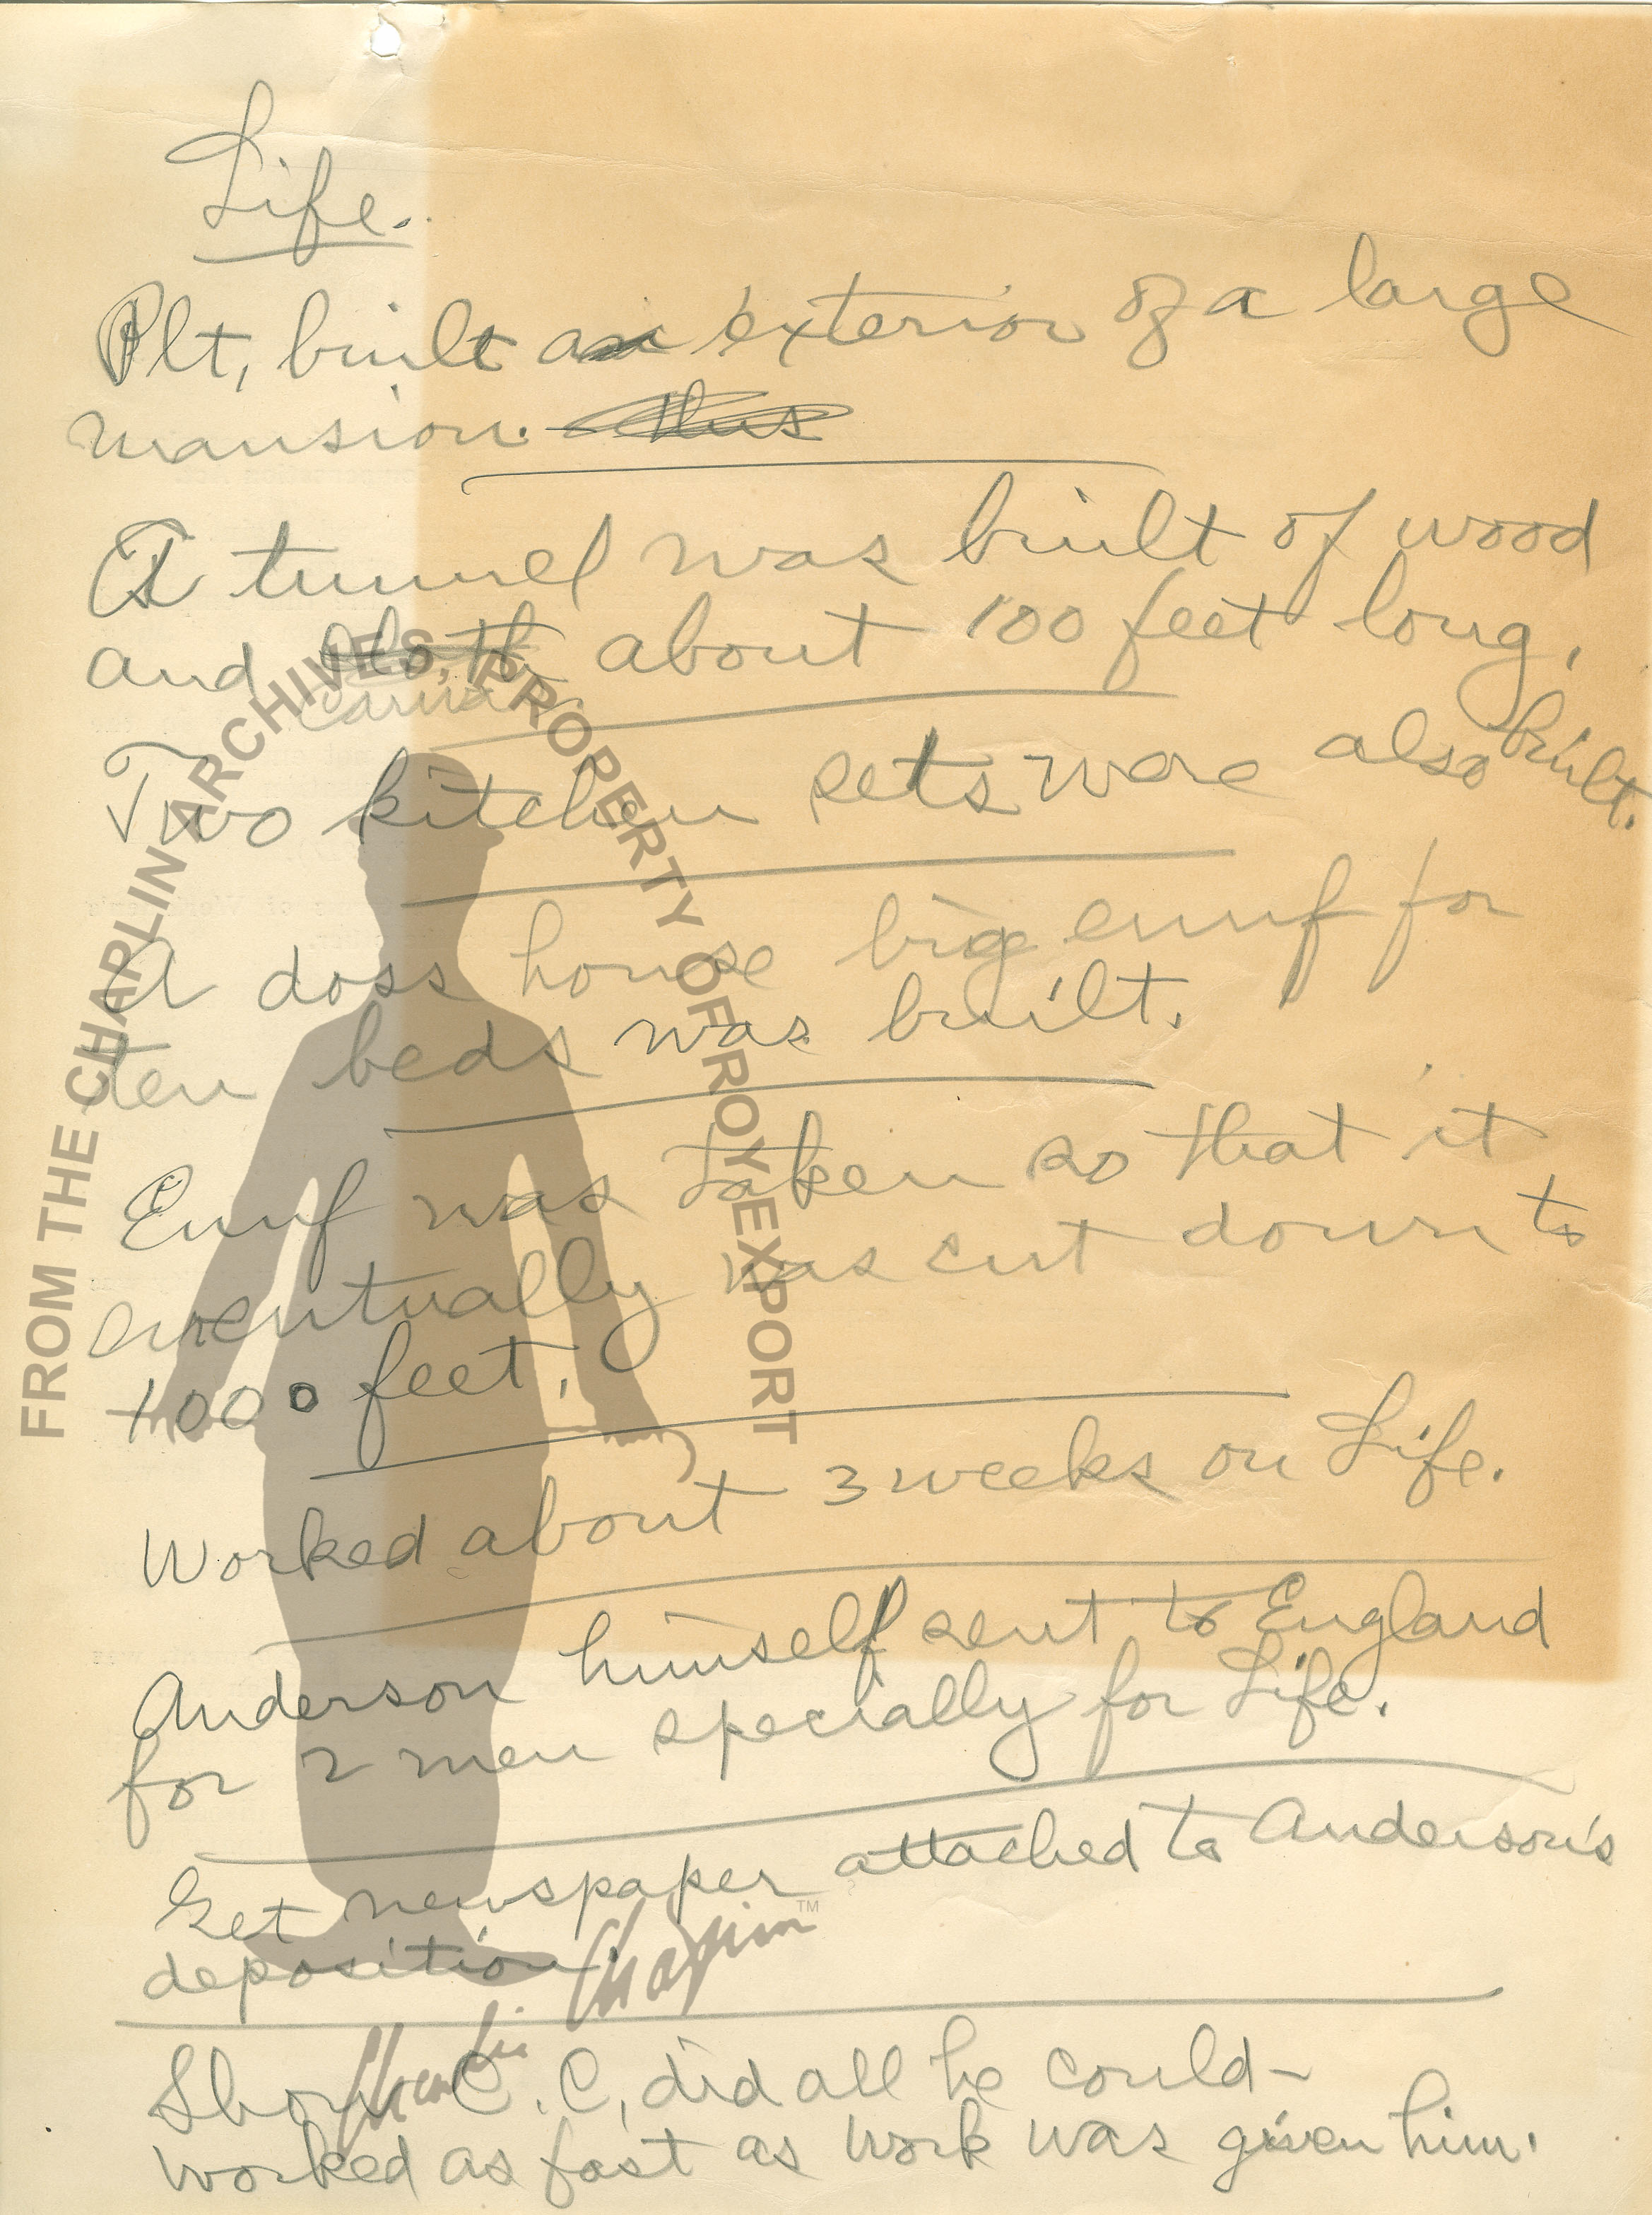 Life.
Plt, built an exterior of a large
mansion. this
A tunnel was built of wood
and cloth about 100 feet long,
canvas
Two kitchen sets were also built.
A doss house big enuf for
ten beds was built.
Enuf was taken so that it
eventually was cut down to
1000 feet.
Worked about 3 weeks on Life.
Anderson himself sent to England
for 2 men specially for Life.
Get newspaper attached to Anderson's
deposition.
Show C.C. did all he could-
worked as fast as work was given him.
FROM THE CHAPLIN ARCHIVES, PROPERTY OF ROY EXPORT
Charlie Chaplin TM